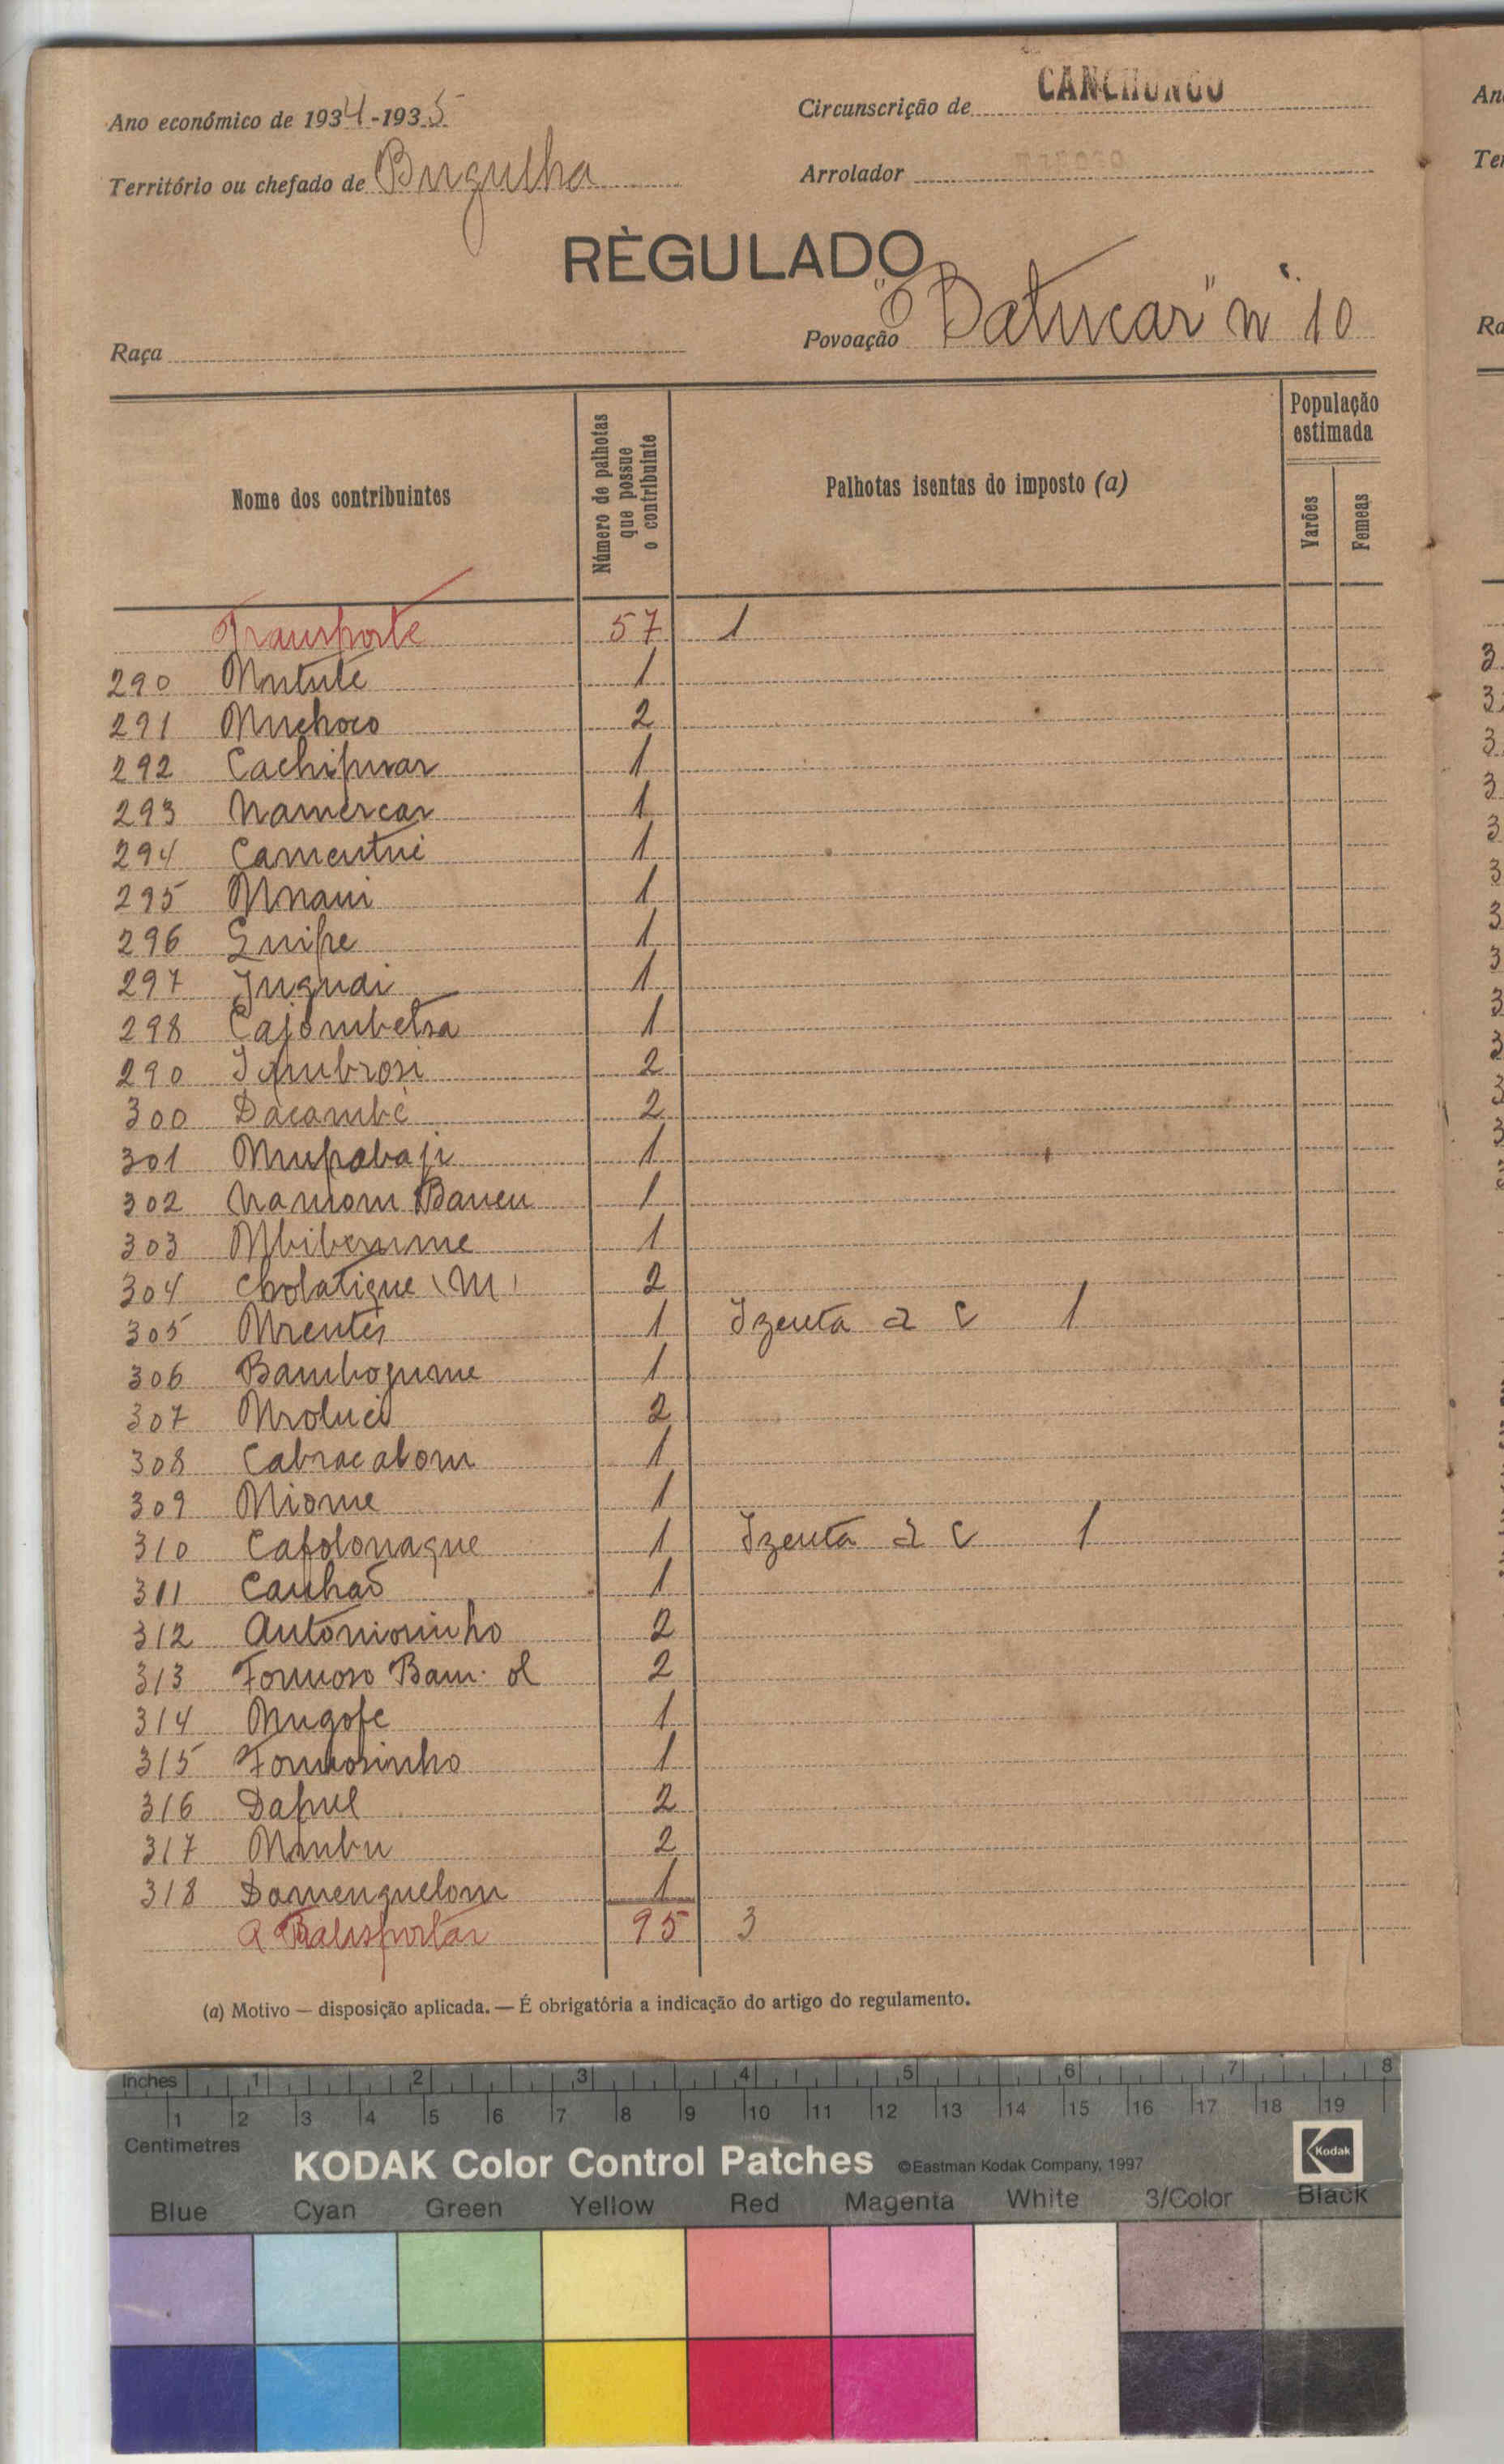 Ano económico de 1934-1935 Circunscrição de CANCHUNGO
Território ou chefado de Bugulha Arrolador
RÈGULADO
Raça Povoação "Batucar" nº 10
Nome dos contribuintes Número de palhotas que possue o contribuinte Palhotas isentas do imposto (a) População estimada Varões Femeas
Transporte 57 1
290 Mutute 1
291 Muchoco 2
292 Cachipuar 1
293 Namercar 1
294 Camentui 1
295 Mnaui 1
296 Guipe 1
297 Jugudi 1
298 Cajombetsa 1
290 Jambrosi 2
300 Dacambé 2
301 Mupabaji 1
302 Namom Baneu 1
303 Mbiberume 1
304 Cholatique (M) 2
305 Mrentes 1 Izenta a c 1
306 Bambogume 1
307 Mroluci 2
308 Cabracabom 1
309 Miome 1
310 Cafolonague 1 Izenta a c 1
311 Canhaõ 1
312 Antoniosinho 2
313 Formoso Bam. ol 2
314 Mugofe 1
315 Formosinho 1
316 Dapul 2
317 Mambu 2
318 Domenguelom 1
A Transportar 95 3
(a) Motivo — disposição aplicada. — É obrigatória a indicação do artigo do regulamento.
Inches 1 2 3 4 5 6 7 8
1 2 3 4 5 6 7 8 9 10 11 12 13 14 15 16 17 18 19
Centimetres
KODAK Color Control Patches ©Eastman Kodak Company, 1997 Kodak
Blue Cyan Green Yellow Red Magenta White 3/Color Black